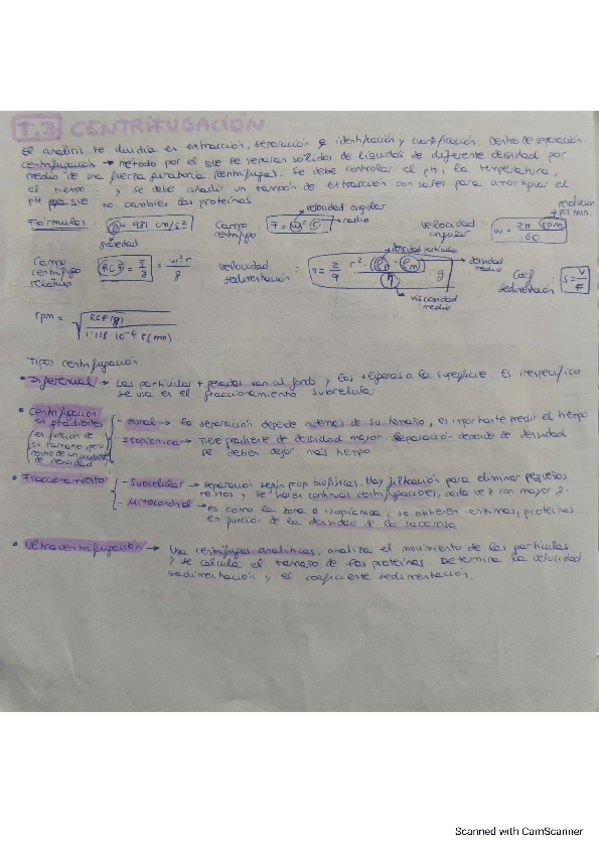 T.3 CENTRIFUGACIÓN
El analisis se dividia en extracción, separación e identificación y cuantificación. Dentro de separación:
centrifugación → método por el que se separan solidos de liquidos de diferente densidad por
medio de una fuerza giratoria (centrifuga). Se debe controlar el pH, la temperatura,
el tiempo... y se debe añadir un tampón de extracción con sales para amortiguar el
pH que no cambien las proteinas
Fórmulas: g = 981 cm/s² gravedad
Campo centrifugo F = w² r velocidad angular radio
velocidad angular w = 2π rpm / 60 revolución por min.
Campo centrifugo relativo RCF = F/g = w² r / g
velocidad sedimentación: v = 2/9 r² (ρp - ρm) / η g densidad particula densidad medio viscosidad medio
Coef sedimentación: s = v/F
rpm = √ RCF (g) / 1.118·10⁻⁶ r (mm)
Tipos centrifugación.
• Diferencial → Las partículas + pesadas van al fondo y las + ligeras a la superficie. Es inespecífico
se usa en el fraccionamiento subcelular
• Centrifugación en gradientes
(es función de su tamaño, pero dentro de un gradiente de densidad)
- Zonal → La separación depende además de su tamaño, es importante medir el tiempo
- Isopicnica → Tiene gradiente de densidad mayor. Separación depende de densidad
se deben dejar más tiempo
• Fraccionamiento
- Subcelular → separación según prop. biofísicas. Hay filtración para eliminar pequeños
restos y se hacen continuas centrifugaciones, cada vez con mayor g.
- Mitocondrial → es como la zonal o isopicnica, se obtienen enzimas, proteinas...
en función de la densidad de la sacarosa
• Ultracentrifugación → Usa centrifugas analíticas, analiza el movimiento de las partículas
y se calcula el tamaño de las proteinas. Determina la velocidad
sedimentación y el coeficiente sedimentación.
Scanned with CamScanner